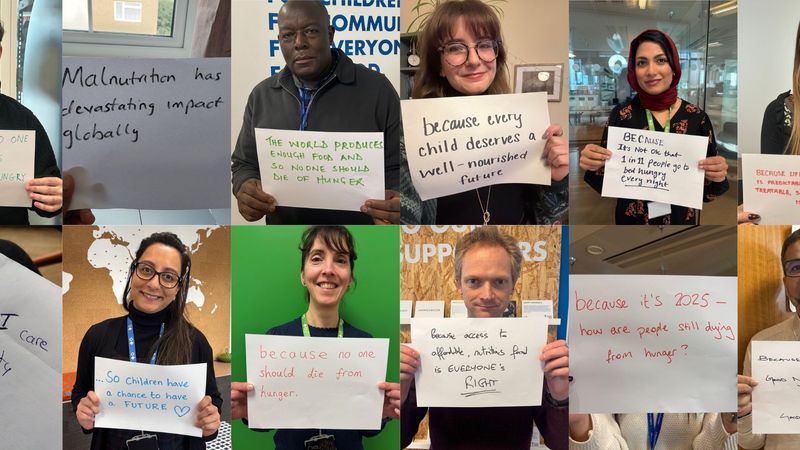 O ONE
S
NGRY
Malnutrition has
devastating impact
globally
FOR CHILDREN
FOR COMMUNI
FOR EVERYON
FOR
THE WORLD PRODUCES
ENOUGH FOOD AND
SO NO ONE SHOULD
DIE OF HUNGER
because every
child deserves a
well-nourished
future
BECAUSE
It's Not OK that
1 in 11 People go to
bed hungry
every night
BECAUSE
IS PREDICTAB
TREATABLE, S
I care
ty
...So CHILDREN HAVE
A CHANCE TO HAVE
A FUTURE ♡
because no one
should die from
hunger.
O OUR
SUPPORTERS
BECAUSE ACCESS TO
affordable, nutritious food
IS EVERYONE'S
RIGHT
because it's 2025 -
how are people still dying
from hunger?
BECAUSE